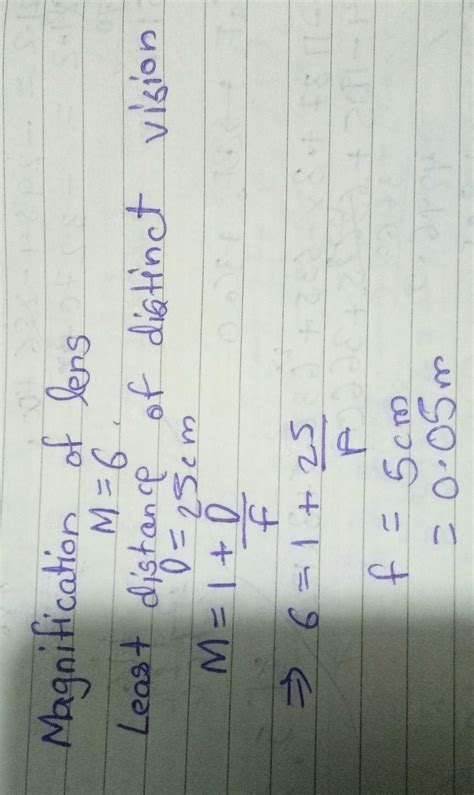 Magnification of lens
M = 6
Least distance of distinct vision
D = 25cm
M = 1 + D/f
⇒ 6 = 1 + 25/f
f = 5cm
= 0.05m